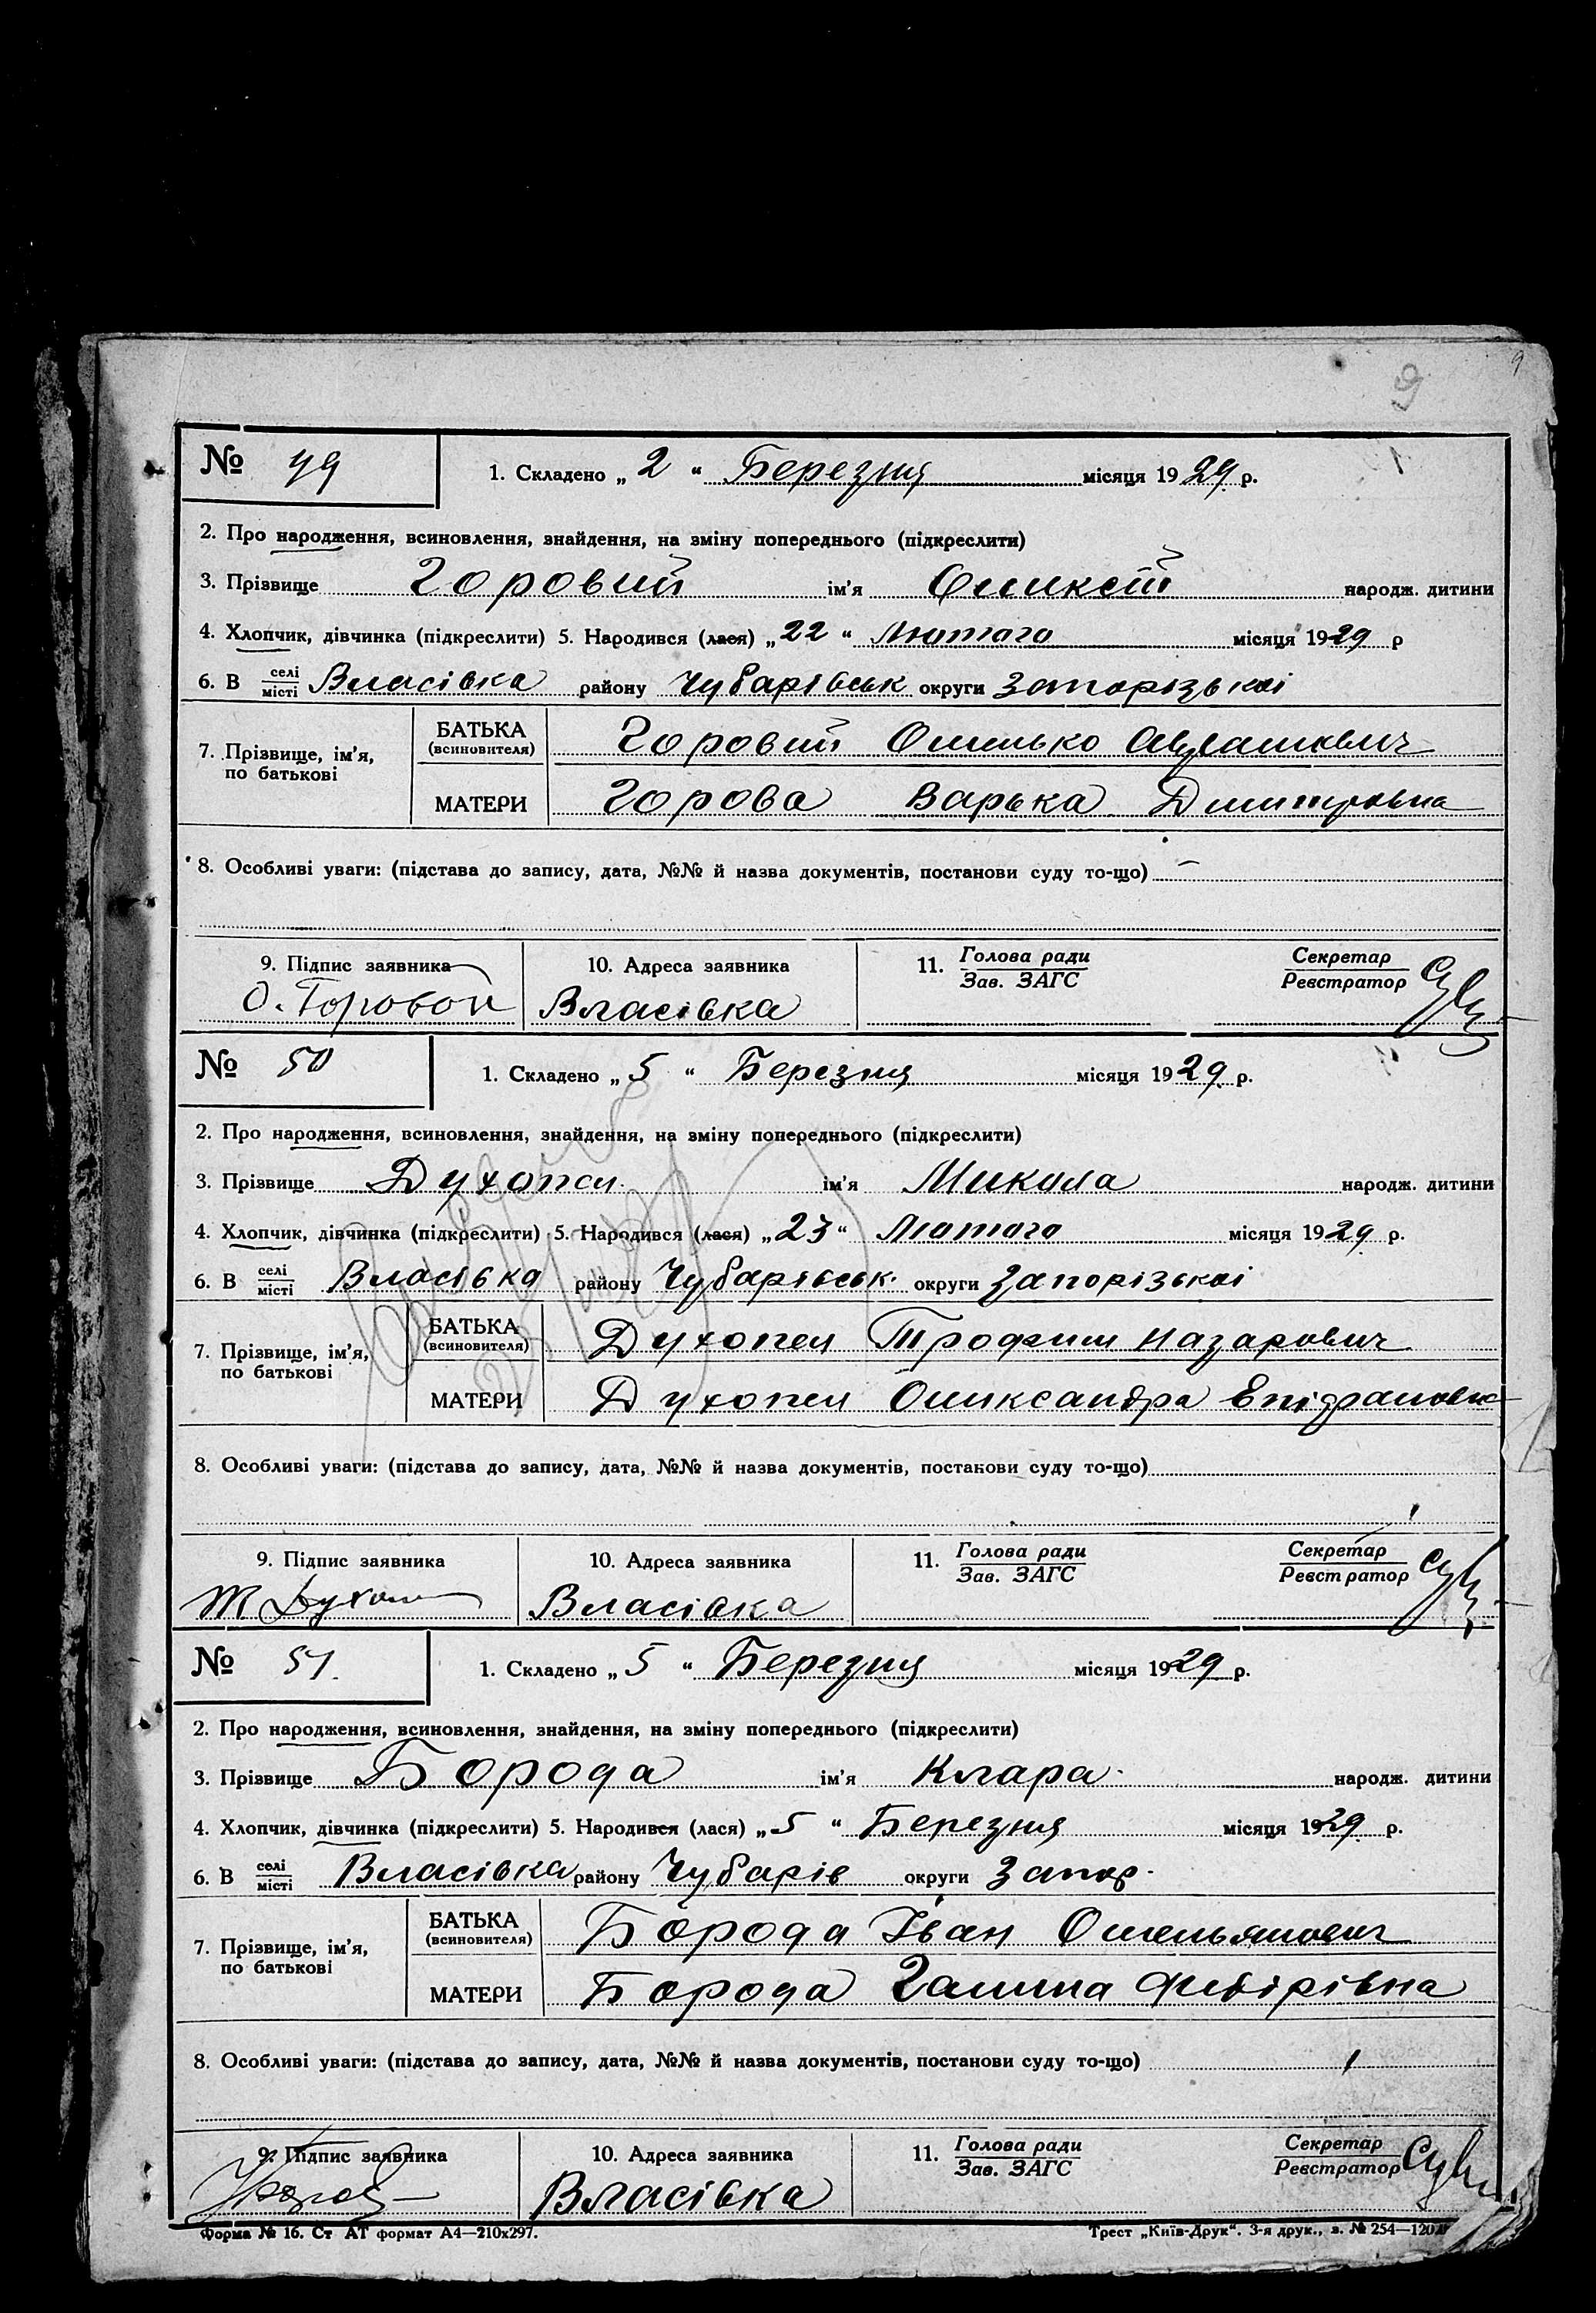 9
9
№ 49
1. Складено „ 2 “ Березня місяця 1929 р.
2. Про народження, всиновлення, знайдення, на зміну попереднього (підкреслити)
3. Прізвище Горовий ім'я Оликсій народж. дитини
4. Хлопчик, дівчинка (підкреслити) 5. Народився (лася) „ 22 “ Лютого місяця 1929 р
6. В селі/місті Власівка району Чубарівськ округи Запорізькоі
7. Прізвище, ім'я, по батькові
БАТЬКА (всиновителя) Горовий Омелько
МАТЕРИ Горова Варька Дмитровна
8. Особливі уваги: (підстава до запису, дата, №№ й назва документів, постанови суду то-що) –
9. Підпис заявника 10. Адреса заявника 11. Голова ради/Зав. ЗАГС Секретар/Реєстратор
О. Горовой Власівка
№ 50
1. Складено „ 5 “ Березня місяця 1929 р.
2. Про народження, всиновлення, знайдення, на зміну попереднього (підкреслити)
3. Прізвище Духопел ім'я Микола народж. дитини
4. Хлопчик, дівчинка (підкреслити) 5. Народився (лася) „ 23 “ Лютого місяця 1929 р.
6. В селі/місті Власівка району Чубарівськ. округи Запорізькоі
7. Прізвище, ім'я, по батькові
БАТЬКА (всиновителя) Духопел Трофим Назарович
МАТЕРИ Духопел Олександра
8. Особливі уваги: (підстава до запису, дата, №№ й назва документів, постанови суду то-що)
9. Підпис заявника 10. Адреса заявника 11. Голова ради/Зав. ЗАГС Секретар/Реєстратор
Т Духопел Власівка
№ 51.
1. Складено „ 5 “ Березня місяця 1929 р.
2. Про народження, всиновлення, знайдення, на зміну попереднього (підкреслити)
3. Прізвище Борода ім'я Клара народж. дитини
4. Хлопчик, дівчинка (підкреслити) 5. Народився (лася) „ 5 “ Березня місяця 1929 р.
6. В селі/місті Власівка району Чубарів округи Запор.
7. Прізвище, ім'я, по батькові
БАТЬКА (всиновителя) Борода Іван Омельянович
МАТЕРИ Борода Галина
8. Особливі уваги: (підстава до запису, дата, №№ й назва документів, постанови суду то-що)
9. Підпис заявника 10. Адреса заявника 11. Голова ради/Зав. ЗАГС Секретар/Реєстратор
Власівка
Форма № 16. Ст АТ формат А4—210х297. Трест „Київ-Друк“. 3-я друк., з. № 254—120